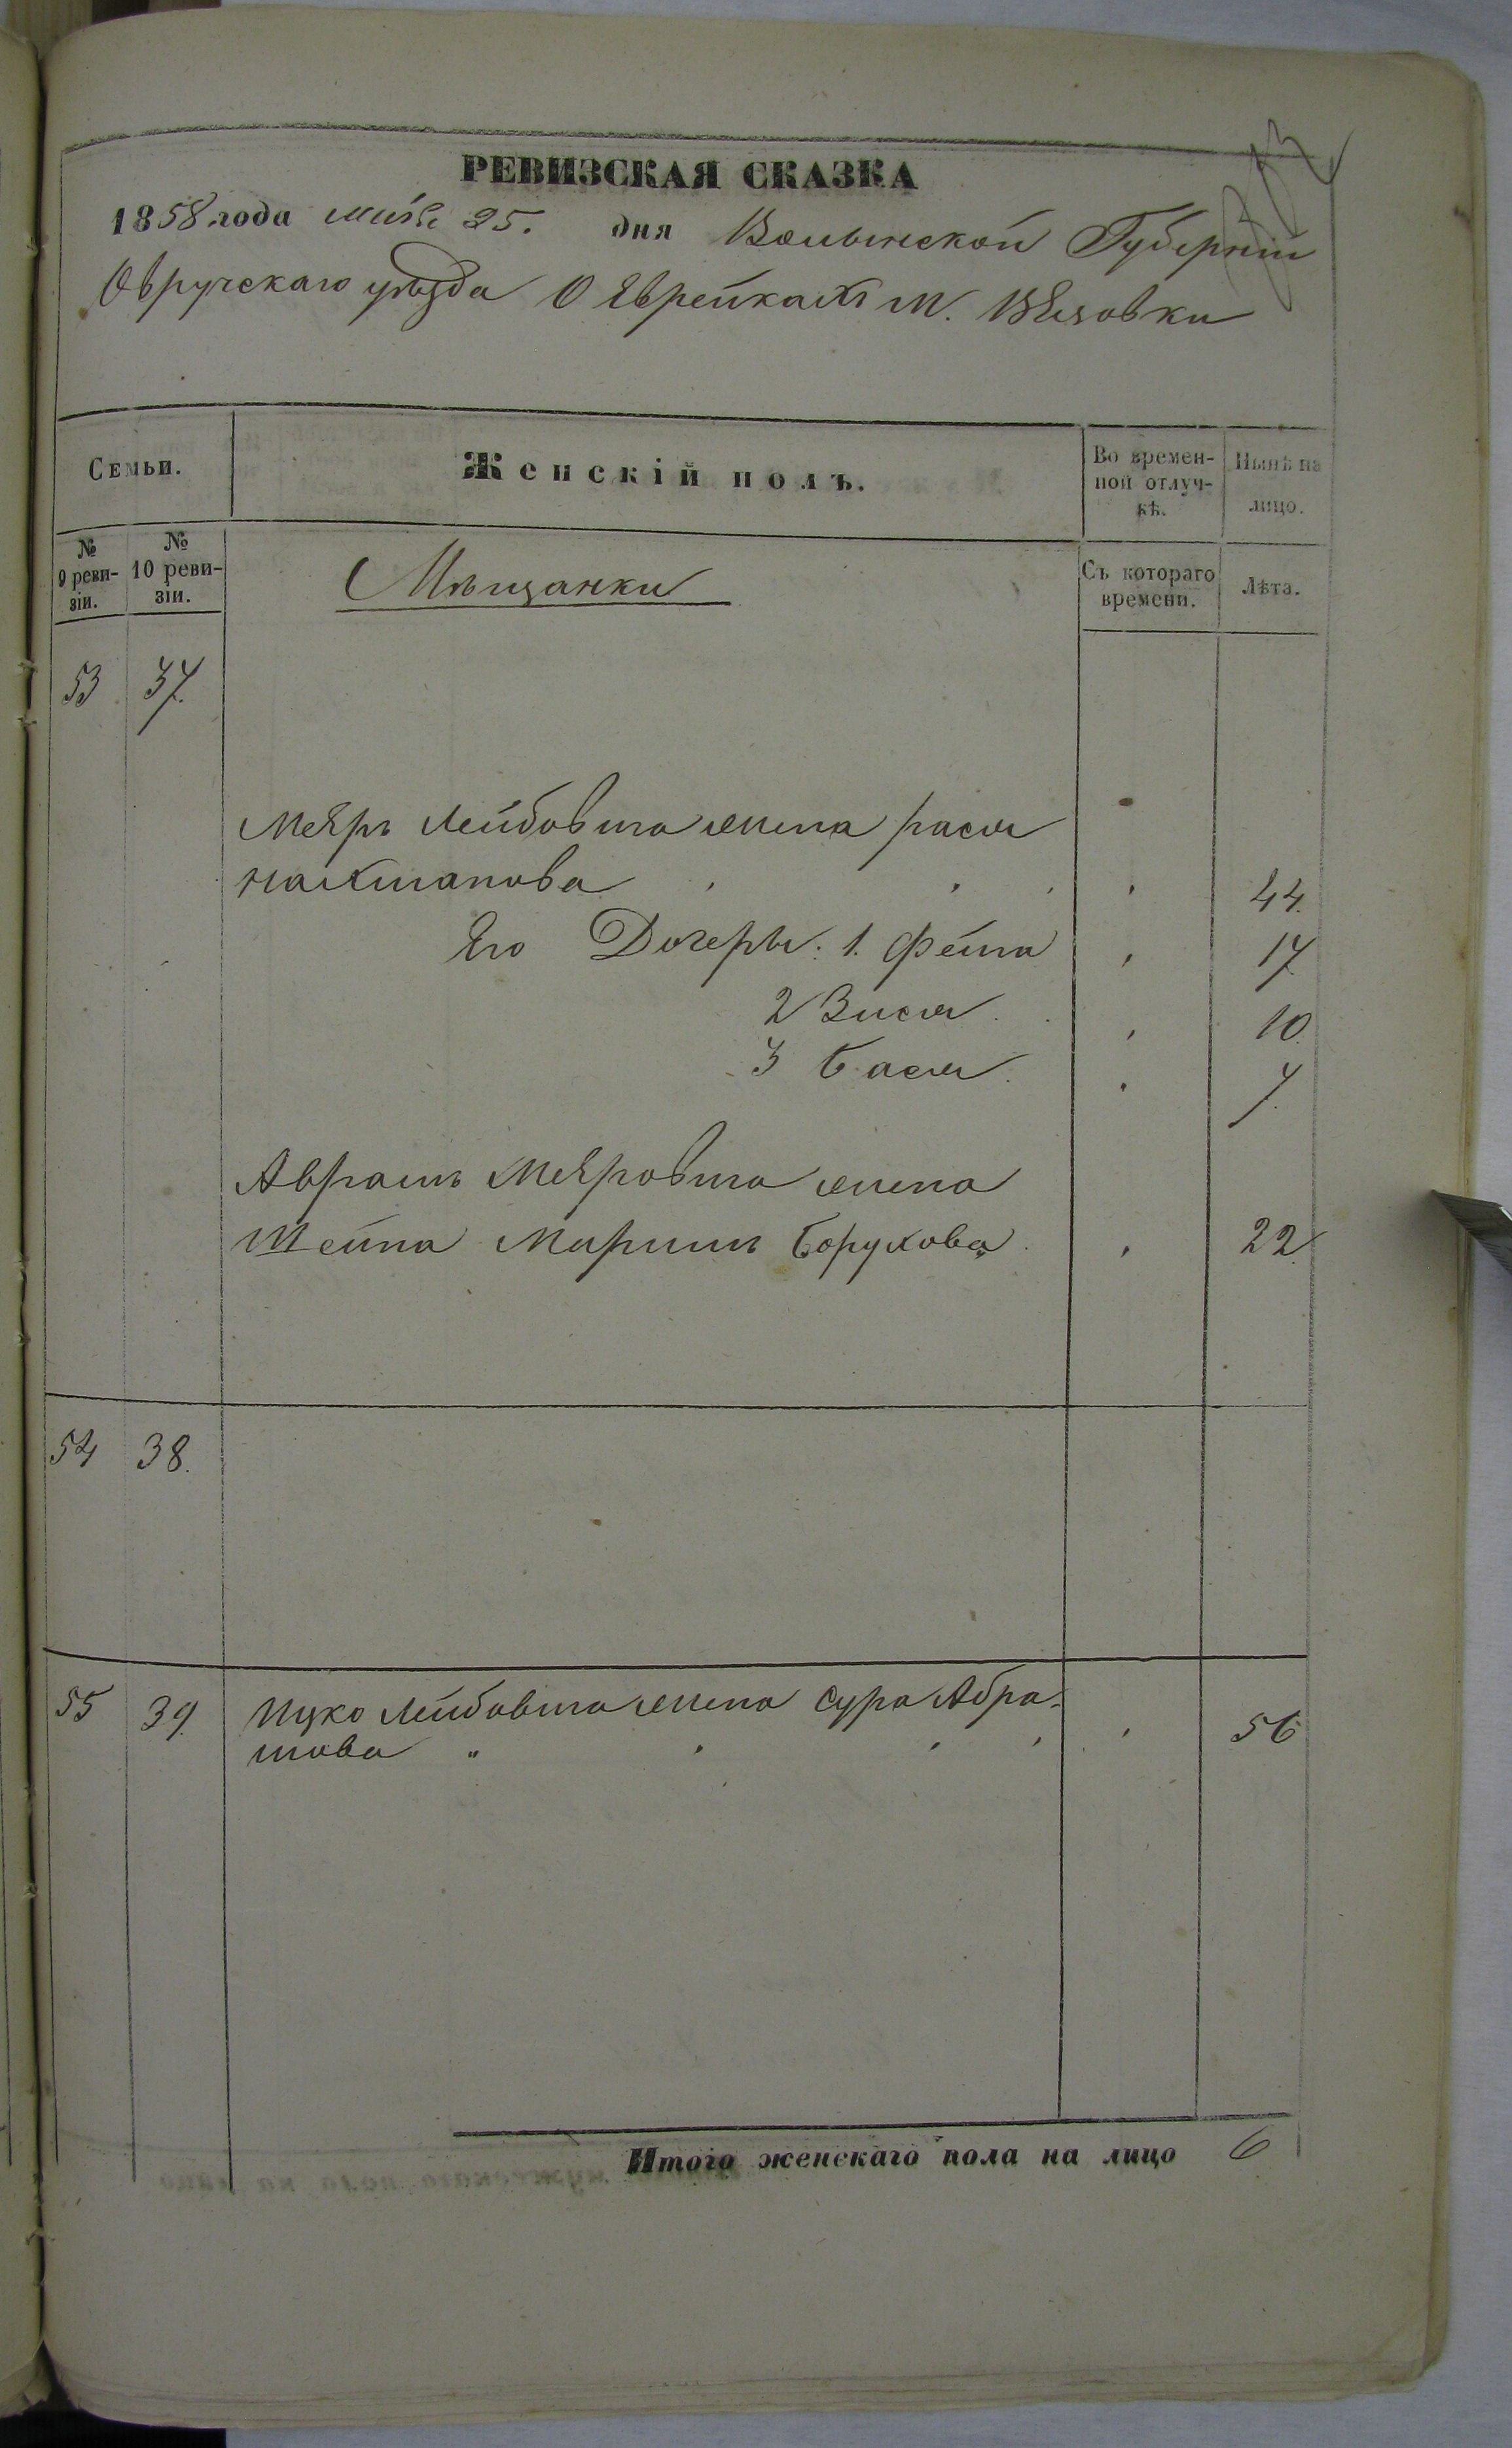 РЕВИЗСКАЯ СКАЗКА
1858 года Маія 25. дня Волынской Губерніи
Овручскаго уѣзда О Еврейкахъ М.
Семьи.
Женскій полъ.
Во времен-
ной отлуч-
кѣ.
Нынѣ на
лицо.
№
9 реви-
зіи.
№
10 реви-
зіи.
Мѣщанки
Съ котораго
времени.
Лѣта.
53 37.
Меяръ Лейбовича жена Рася
Нахманова 44.
Его Дочеры: 1. Фейга 17
2 Зися 10.
3 Бася 7.
Аврамъ Меяровича жена
Шейна Миримъ Борухова 22.
54 38.
55 39. Ицко Лейбовича жена Сура Абра-
мова " 56
Итого женскаго пола на лицо 6